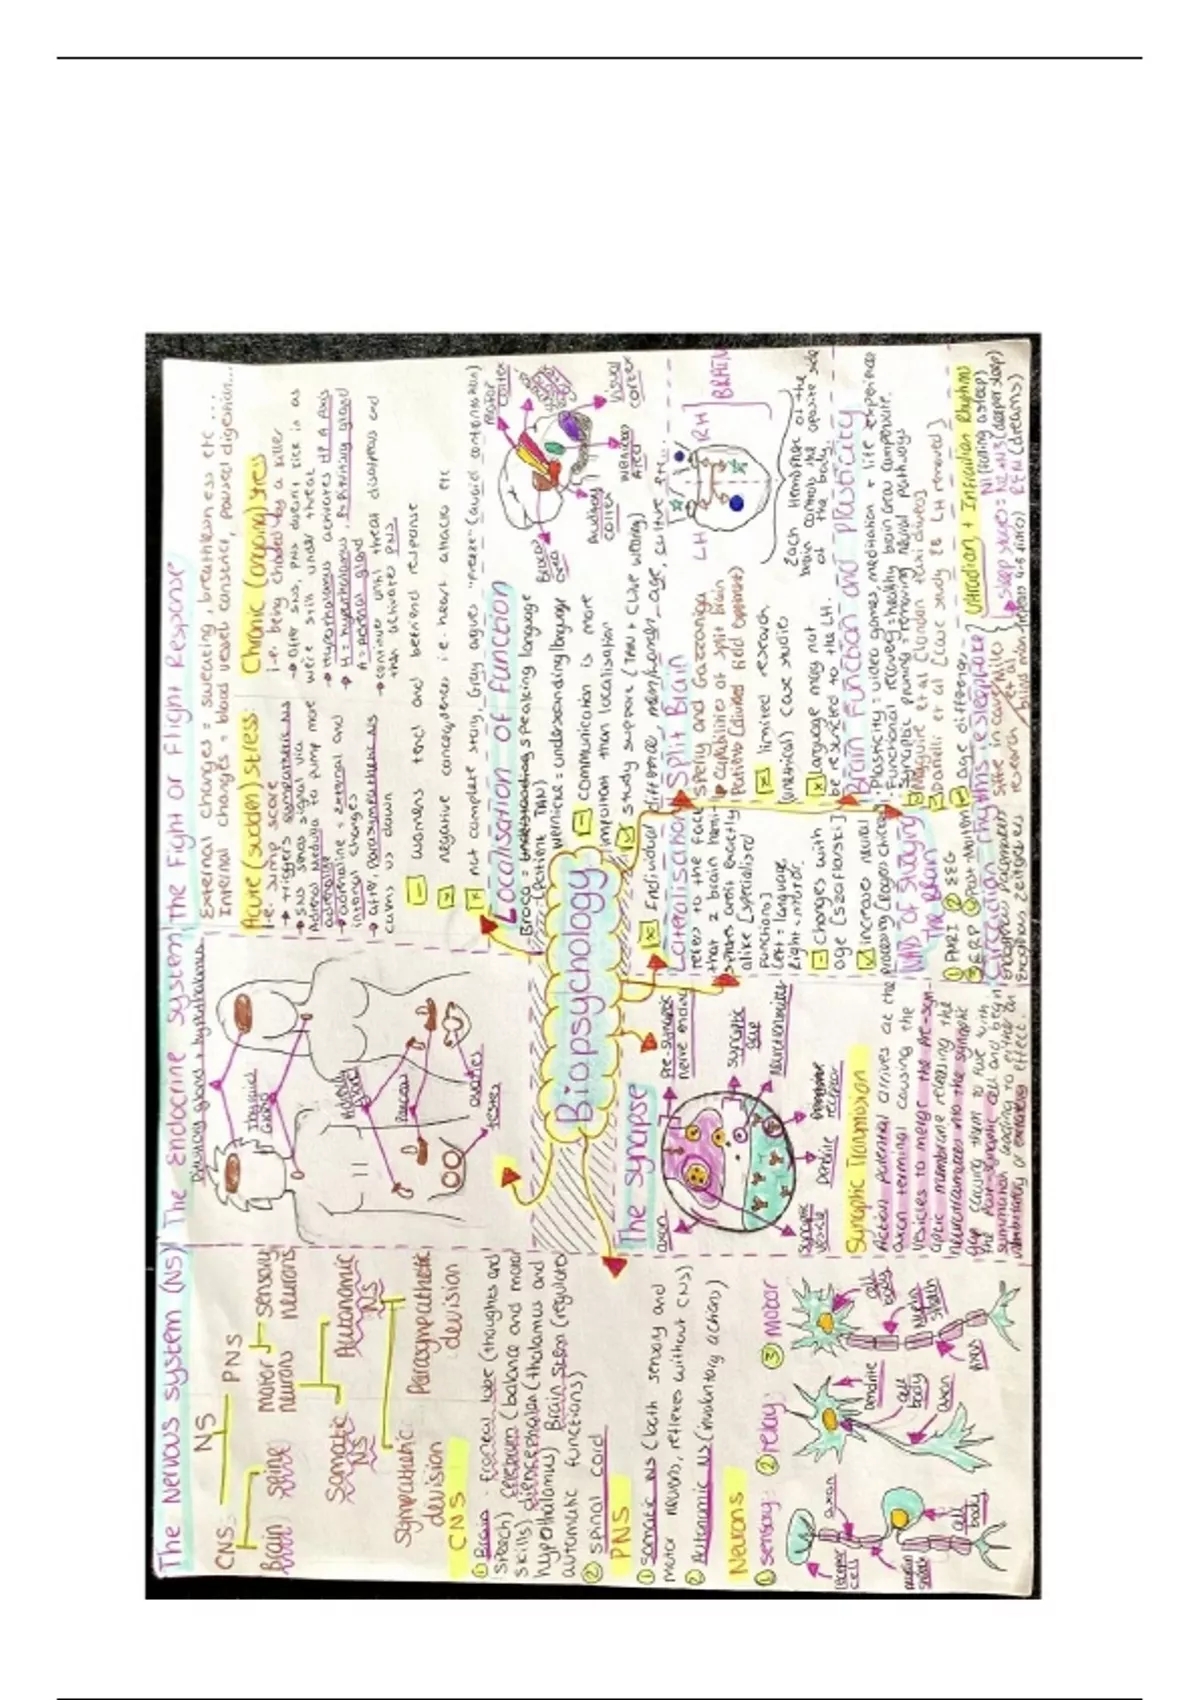 The Nervous System (NS)
NS
CNS
PNS
Brain
Spine
motor neurons
sensory neurons
Somatic NS
Autonomic NS
Sympathetic devision
Parasympathetic devision
CNS
① Brain - frontal lobe (thoughts and
speech) cerebrum (balance and motor
skills) diencephalon (thalamus and
hypothalamus) Brain stem (regulates
automatic functions)
② spinal cord
PNS
① Somatic NS (both sensory and
motor neurons, reflexes without CNS)
② Autonomic NS (involuntary actions)
Neurons
① sensory:
② relay:
③ motor
receptor cell
axon
myelin sheath
cell body
dendrite
cell body
axon
cell body
myelin sheath
axon
The Endocrine System
Pituitary gland + hypothalamus
Thyroid Gland
Adrenal gland
Pancreas
ovaries
testes
Biopsychology
The Synapse
axon
Pre-synaptic nerve ending
synaptic gap
neurotransmitters
receptor
dendrite
synaptic vesicle
Synaptic Transmission
Action potential arrives at the
axon terminal causing the
vesicles to merge the pre-syn-
aptic membrane releasing the
neurotransmitters into the synaptic
gap causing them to fuse with
the post-synaptic cell and begin
summation leading to either an
inhibitory or excitatory effect.
The Fight or Flight Response
External changes = sweating, breathlessness etc...
Internal changes = blood vessels constrict, paused digestion...
Acute (sudden) stress:
i.e. jump scare
→ triggers sympathetic NS
→ SNS sends signal via
Adrenal Medulla to pump more
adrenaline
→ adrenaline = external and
internal changes
→ after, parasympathetic NS
calms us down
Chronic (ongoing) stress
i.e. being chased by a killer
→ after SNS, PNS doesn't kick in as
we're still under threat
→ Hypothalamus activates HPA Axis
→ H = hypothalamus, P = Pituitary gland
A = adrenal gland
→ continues until threat disappears and
then activates PNS
- womens tend and befriend response
x negative consequences i.e. heart attacks etc
x not complete story, Gray argues "freeze" (avoid confrontation)
Localisation of function
Broca = understanding speaking language
(Patient TAN)
Wernicke = understanding language
- communication is more
important than localisation
study support (TAN + Clive Wearing)
x Individual difference, men/women, age, culture etc...
motor cortex
Brocas area
Auditory cortex
Wernickes Area
Visual cortex
Lateralisation
refers to the fact
that 2 brain hemi-
spheres aren't exactly
alike [specialised
functions]
Left = language
Right = mirror
- changes with
age [Szaflarski]
increases neural
processing
Split Brain
Sperry and Gazzaniga
capabilities of split brain
Patients (divided field experiment)
x limited research
(unethical) case studies
x language may not
be restricted to the LH.
LH
RH
BRAIN
Each Hemisphere of the
brain controls the oposite side
of the body.
Brain Function and plasticity
Plasticity: video games, meditation + life experiences
Functional recovery = healthy brain areas compensate.
Synaptic pruning = removing neural pathways
Maguire et al [London taxi drivers]
Danelli et al [case study EB LH removed]
x age differences
Ways of studying The Brain
① fMRI ② EEG
③ ERP ④ Post-Mortem
Circadian Rhythms ie sleep/wake
endogenous pacemakers
Exogenous zeitgebers
Siffre in cave
research et al.
Ultradian + Infradian Rhythms
Sleep stages:
N1 (falling asleep)
N2+N3 (deeper sleep)
REM (dreams)